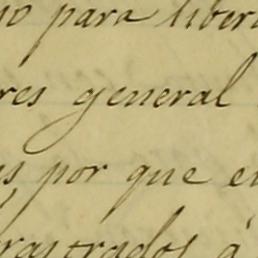 jo para liber
res general
s, por que e
rastrados á